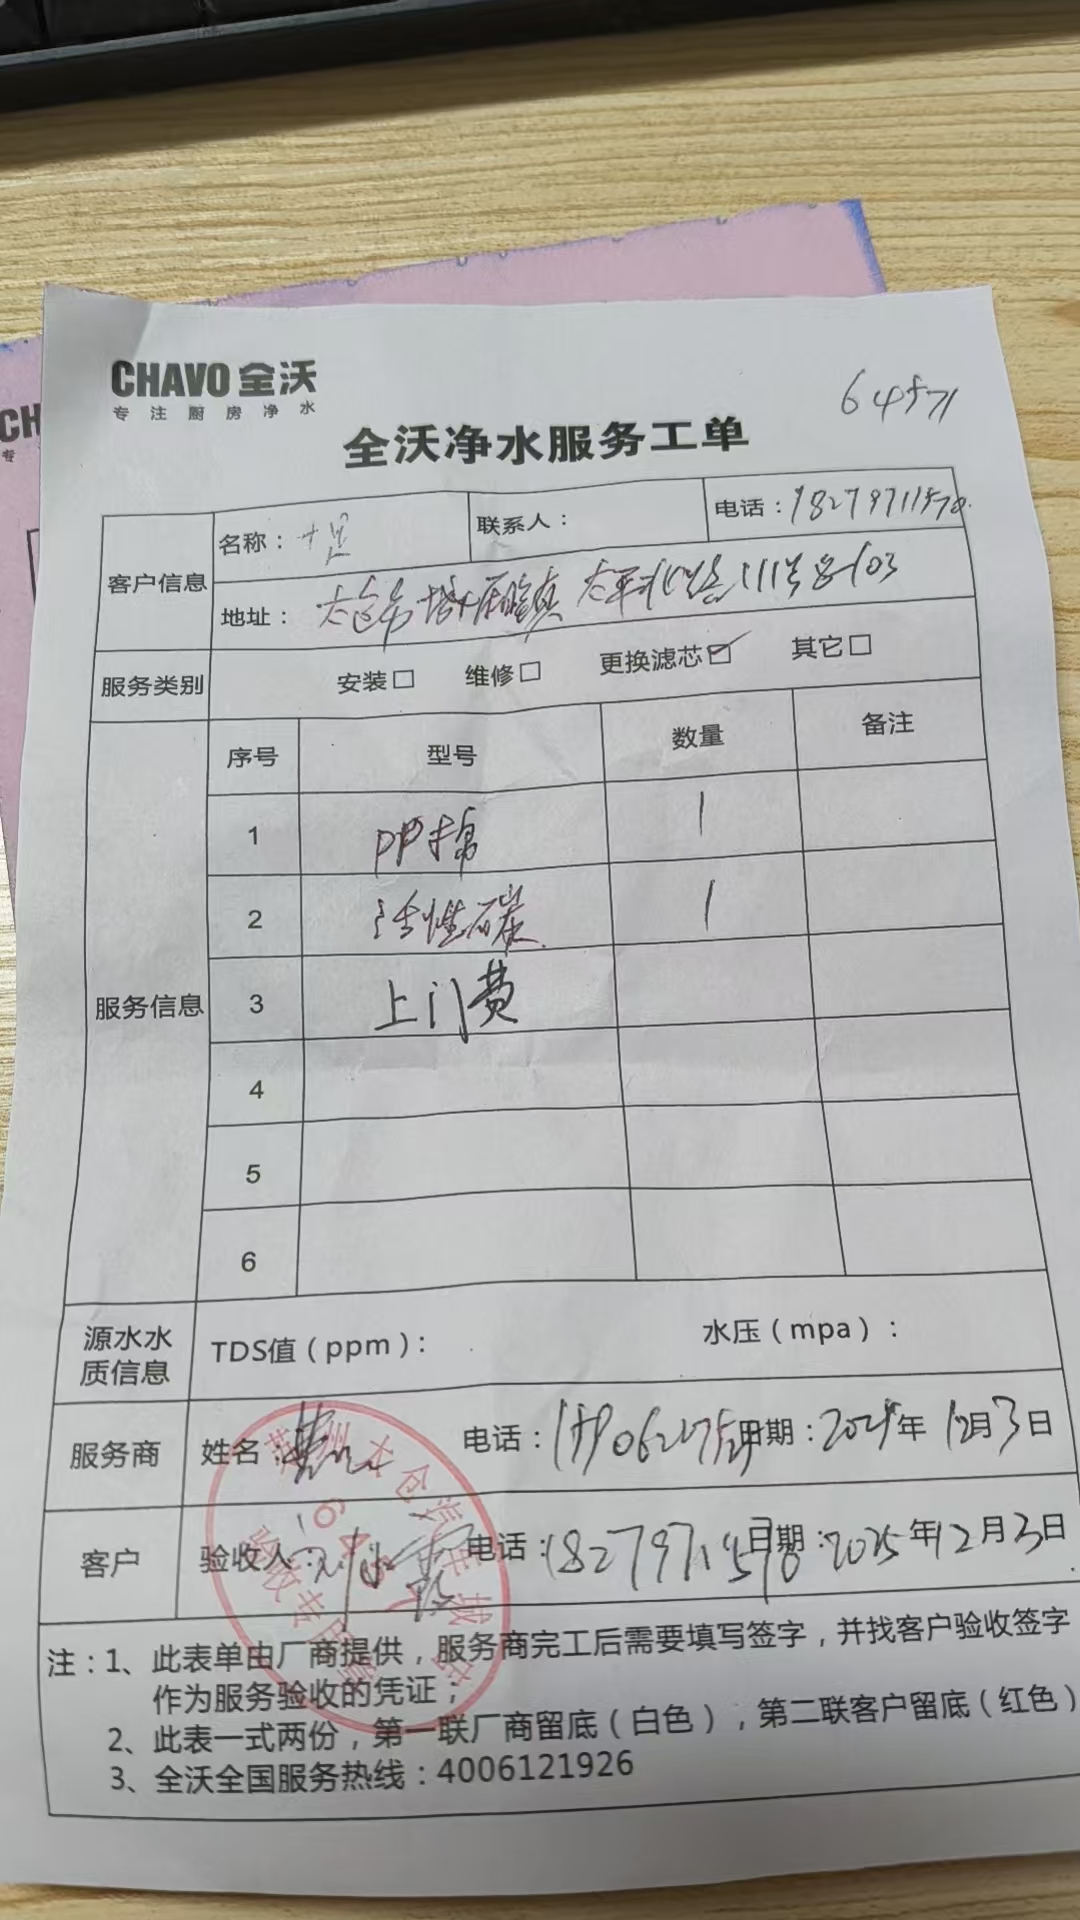 CHAVO 全沃
专注厨房净水
全沃净水服务工单
客户信息
名称：
联系人：
电话：18279711578
地址：
服务类别
安装□ 维修□ 更换滤芯☑ 其它□
服务信息
序号 型号 数量 备注
1 PP棉 1
2 活性碳 1
3 上门费
4
5
6
源水水质信息
TDS值（ppm）： 水压（mpa）：
服务商
姓名： 电话： 日期：2025年12月3日
客户
验收人： 电话： 日期：2025年12月3日
注：1、此表单由厂商提供，服务商完工后需要填写签字，并找客户验收签字
作为服务验收的凭证；
2、此表一式两份，第一联厂商留底（白色），第二联客户留底（红色）
3、全沃全国服务热线：4006121926